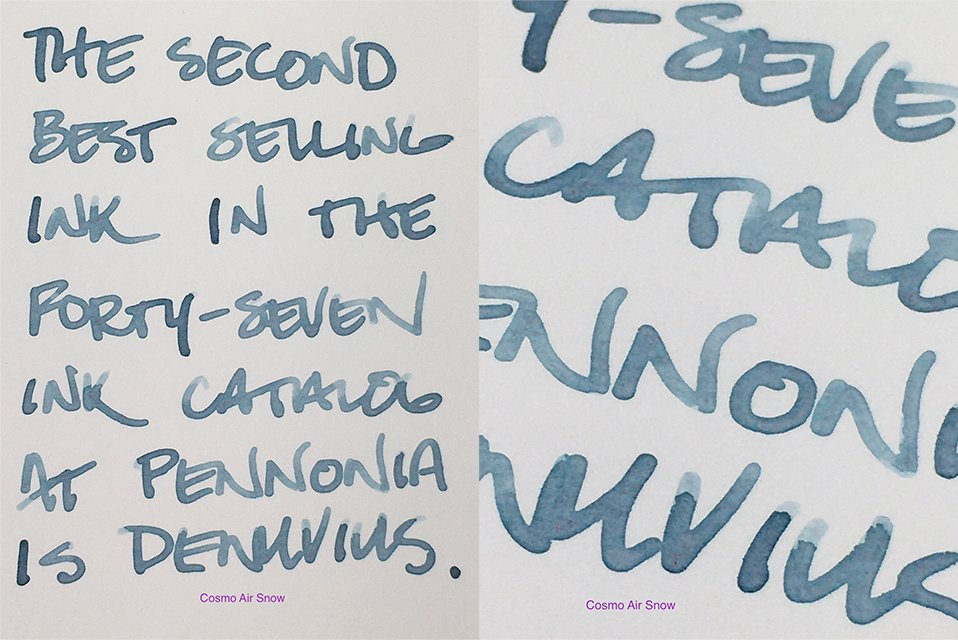 THE SECOND
BEST SELLING
INK IN THE
FORTY-SEVEN
INK CATALOG
AT PENNONIA
IS DENUVIUS.
Cosmo Air Snow
Y-SEVE
CATALO
ENNON
NUVIUS
Cosmo Air Snow